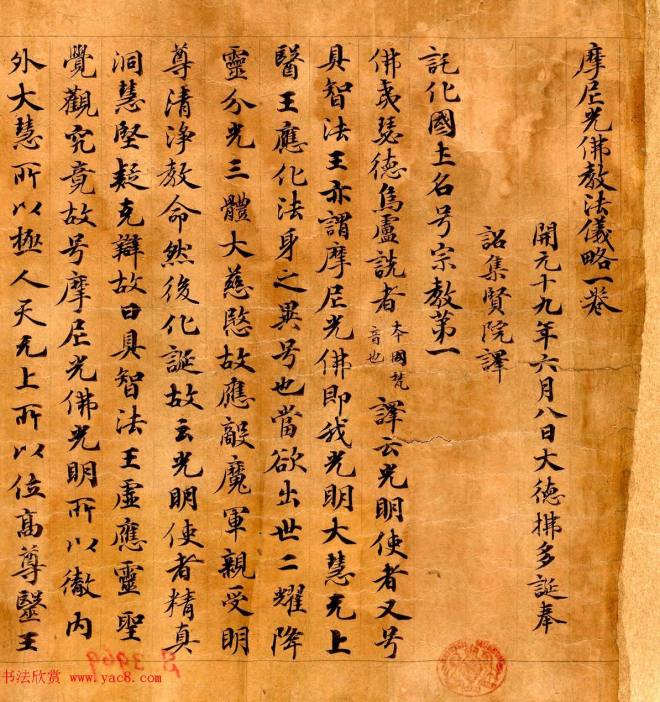 摩尼光佛教法儀略一卷
開元十九年六月八日大德拂多誕奉
詔集賢院譯
託化國土名号宗教第一
佛夷瑟德烏盧詵者 本國梵音也 譯云光明使者又号
具智法王亦謂摩尼光佛即我光明大慧无上
醫王應化法身之異号也當欲出世二耀降
靈分光三體大慈愍故應敵魔軍親受明
尊清淨教命然後化誕故云光明使者精真
洞慧堅疑克辯故曰具智法王虛應靈聖
覺觀究竟故号摩尼光佛光明所以徹內
外大慧所以極人天无上所以位高尊醫王
书法欣赏 www.yac8.com